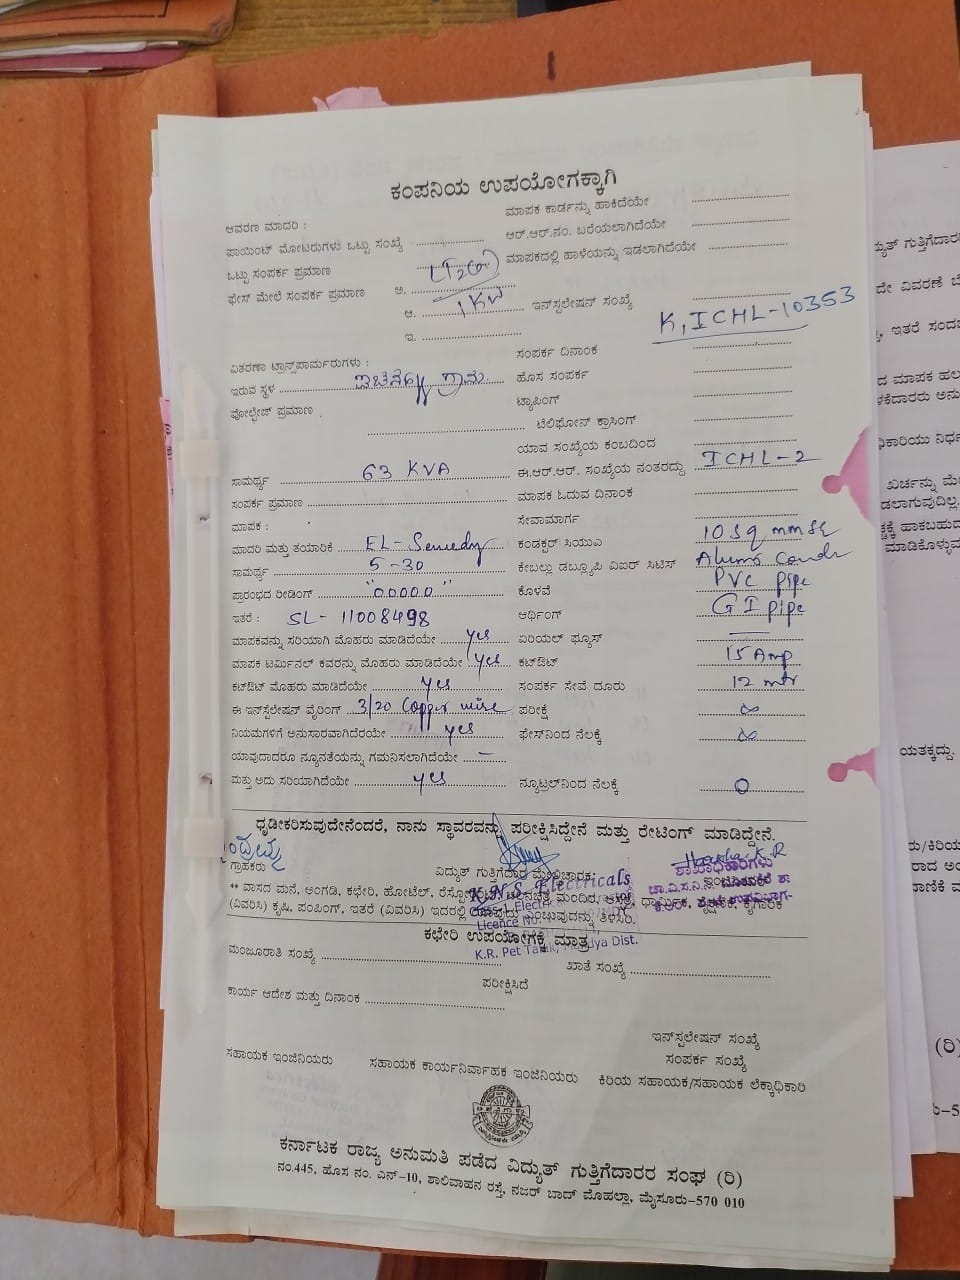 ಕಂಪನಿಯ ಉಪಯೋಗಕ್ಕಾಗಿ
ಆವರಣ ಮಾದರಿ : ಮಾಪಕ ಕಾರ್ಡನ್ನು ಹಾಕಿದೆಯೇ
ಪಾಯಿಂಟ್ ಮೋಟರುಗಳು ಒಟ್ಟು ಸಂಖ್ಯೆ ಆರ್.ಆರ್.ನಂ. ಬರೆಯಲಾಗಿದೆಯೇ
ಒಟ್ಟು ಸಂಪರ್ಕ ಪ್ರಮಾಣ ಮಾಪಕದಲ್ಲಿ ಹಾಳೆಯನ್ನು ಇಡಲಾಗಿದೆಯೇ
ಫೇಸ್ ಮೇಲೆ ಸಂಪರ್ಕ ಪ್ರಮಾಣ ಅ.
ಆ. 1 KW ಇನ್‌ಸ್ಟಲೇಷನ್ ಸಂಖ್ಯೆ
K, ICHL-10353
ಇ.
ವಿತರಣಾ ಟ್ರಾನ್ಸ್‌ಪಾರ್ಮರುಗಳು : ಸಂಪರ್ಕ ದಿನಾಂಕ
ಇರುವ ಸ್ಥಳ ಗ್ರಾಮ ಹೊಸ ಸಂಪರ್ಕ
ವೋಲ್ಟೇಜ್ ಪ್ರಮಾಣ ಟ್ಯಾಪಿಂಗ್
ಟೆಲಿಫೋನ್ ಕ್ರಾಸಿಂಗ್
ಯಾವ ಸಂಖ್ಯೆಯ ಕಂಬದಿಂದ
ಸಾಮರ್ಥ್ಯ 63 KVA ಈ.ಆರ್.ಆರ್. ಸಂಖ್ಯೆಯ ನಂತರದ್ದು ICHL-2
ಸಂಪರ್ಕ ಪ್ರಮಾಣ ಮಾಪಕ ಓದುವ ದಿನಾಂಕ
ಮಾಪಕ : ಸೇವಾಮಾರ್ಗ
ಮಾದರಿ ಮತ್ತು ತಯಾರಿಕೆ EL- ಕಂಡಕ್ಟರ್ ಸಿಯುಎ 10 sq mm
ಸಾಮರ್ಥ್ಯ 5-30 ಕೇಬಲ್ಲು ಡಬ್ಲ್ಯೂಪಿ ವಿಐರ್ ಸಿಟಿಸ್
ಪ್ರಾರಂಭದ ರೀಡಿಂಗ್ "00000" ಕೊಳವೆ PVC pipe
ಇತರೆ : SL- 11008498 ಆರ್ಥಿಂಗ್ GI pipe
ಮಾಪಕವನ್ನು ಸರಿಯಾಗಿ ಮೊಹರು ಮಾಡಿದೆಯೇ yes ಏರಿಯಲ್ ಫ್ಯೂಸ್ —
ಮಾಪಕ ಟರ್ಮಿನಲ್ ಕವರನ್ನು ಮೊಹರು ಮಾಡಿದೆಯೇ yes ಕಟ್‌ಔಟ್ 15 Amp
ಕಟ್‌ಔಟ್ ಮೊಹರು ಮಾಡಿದೆಯೇ yes ಸಂಪರ್ಕ ಸೇವೆ ದೂರು 12 mtr
ಈ ಇನ್‌ಸ್ಟಲೇಷನ್ ವೈರಿಂಗ್ 3/20 Copper wire ಪರೀಕ್ಷೆ ∞
ನಿಯಮಗಳಿಗೆ ಅನುಸಾರವಾಗಿದೆರಯೇ yes ಫೇಸ್‌ನಿಂದ ನೆಲಕ್ಕೆ ∞
ಯಾವುದಾದರೂ ನ್ಯೂನತೆಯನ್ನು ಗಮನಿಸಲಾಗಿದೆಯೇ —
ಮತ್ತು ಅದು ಸರಿಯಾಗಿದೆಯೇ yes ನ್ಯೂಟ್ರಲ್‌ನಿಂದ ನೆಲಕ್ಕೆ 0
ಧೃಡೀಕರಿಸುವುದೇನೆಂದರೆ, ನಾನು ಸ್ಥಾವರವನ್ನು ಪರೀಕ್ಷಿಸಿದ್ದೇನೆ ಮತ್ತು ರೇಟಿಂಗ್ ಮಾಡಿದ್ದೇನೆ.
ಗ್ರಾಹಕರು ವಿದ್ಯುತ್ ಗುತ್ತಿಗೆದಾರ ಮೇಲ್ವಿಚಾರಕ:
ಶಾಖಾಧಿಕಾರಿಗಳು
K.N.S. Electricals
** ವಾಸದ ಮನೆ, ಅಂಗಡಿ, ಕಛೇರಿ, ಹೋಟೆಲ್,
(ವಿವರಿಸಿ) ಕೃಷಿ, ಪಂಪಿಂಗ್, ಇತರೆ (ವಿವರಿಸಿ) ಇದರಲ್ಲಿ ಯಾವುದು ಎಂಬುವುದನ್ನು ತಿಳಿಸಿರಿ.
Licence No.
ಕಛೇರಿ ಉಪಯೋಗಕ್ಕೆ ಮಾತ್ರ
K.R. Pet Taluk, Mandya Dist.
ಮಂಜೂರಾತಿ ಸಂಖ್ಯೆ ಖಾತೆ ಸಂಖ್ಯೆ
ಪರೀಕ್ಷಿಸಿದೆ
ಕಾರ್ಯ ಆದೇಶ ಮತ್ತು ದಿನಾಂಕ
ಇನ್‌ಸ್ಟಲೇಷನ್ ಸಂಖ್ಯೆ
ಸಂಪರ್ಕ ಸಂಖ್ಯೆ
ಸಹಾಯಕ ಇಂಜಿನಿಯರು ಸಹಾಯಕ ಕಾರ್ಯನಿರ್ವಾಹಕ ಇಂಜಿನಿಯರು ಕಿರಿಯ ಸಹಾಯಕ/ಸಹಾಯಕ ಲೆಕ್ಕಾಧಿಕಾರಿ
ಕರ್ನಾಟಕ ರಾಜ್ಯ ಅನುಮತಿ ಪಡೆದ ವಿದ್ಯುತ್ ಗುತ್ತಿಗೆದಾರರ ಸಂಘ (ರಿ)
ನಂ.445, ಹೊಸ ನಂ. ಎನ್-10, ಶಾಲಿವಾಹನ ರಸ್ತೆ, ನಜರ್ ಬಾದ್ ಮೊಹಲ್ಲಾ, ಮೈಸೂರು-570 010